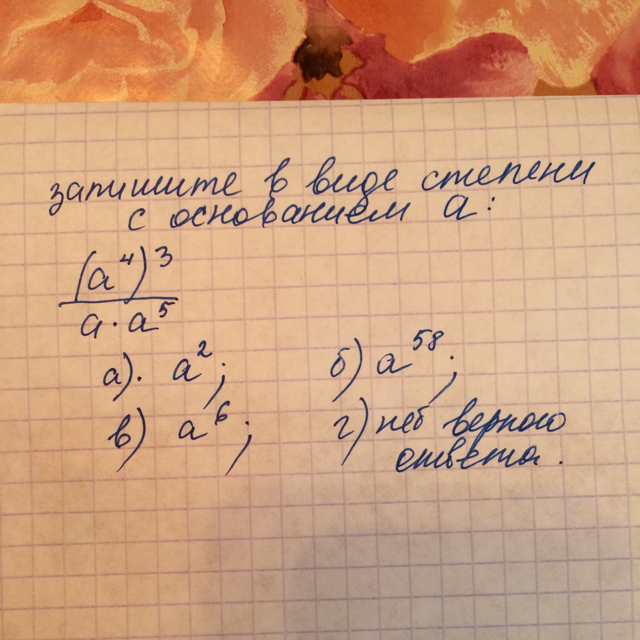 запишите в виде степени
с основанием a:
(a⁴)³
a · a⁵
а). a²; б) a⁵⁸;
в) a⁶; г) нет верного
ответа.